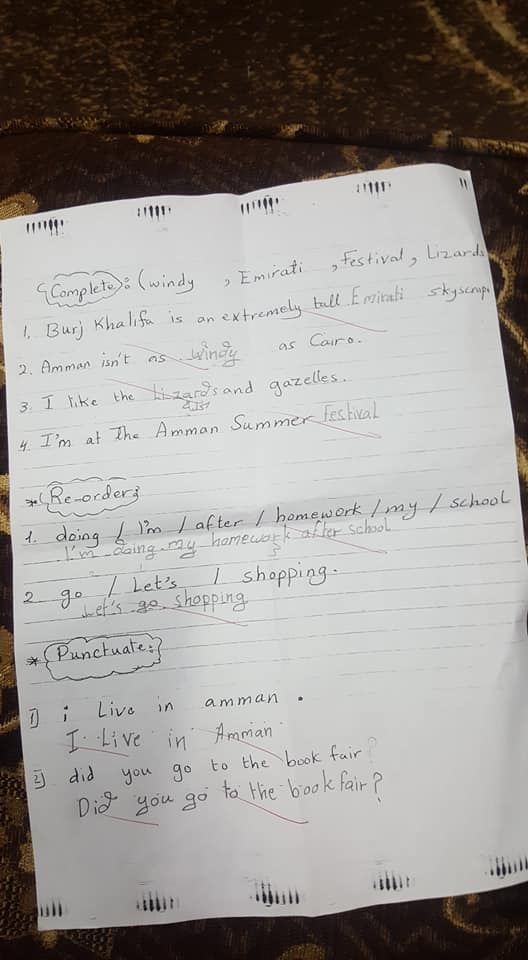 Complete: (windy , Emirati , Festival, Lizards
1. Burj Khalifa is an extremely tall Emirati
2. Amman isn't as windy as Cairo.
3. I like the Lizards and gazelles.
4. I'm at The Amman Summer Festival
* Re-order:
1. doing / I'm / after / homework / my / school
I'm doing my homework after school
2 go / Let's / shopping.
Let's go shopping
* Punctuate:
1) i Live in amman .
I Live in Amman
2) did you go to the book fair?
Did you go to the book fair?